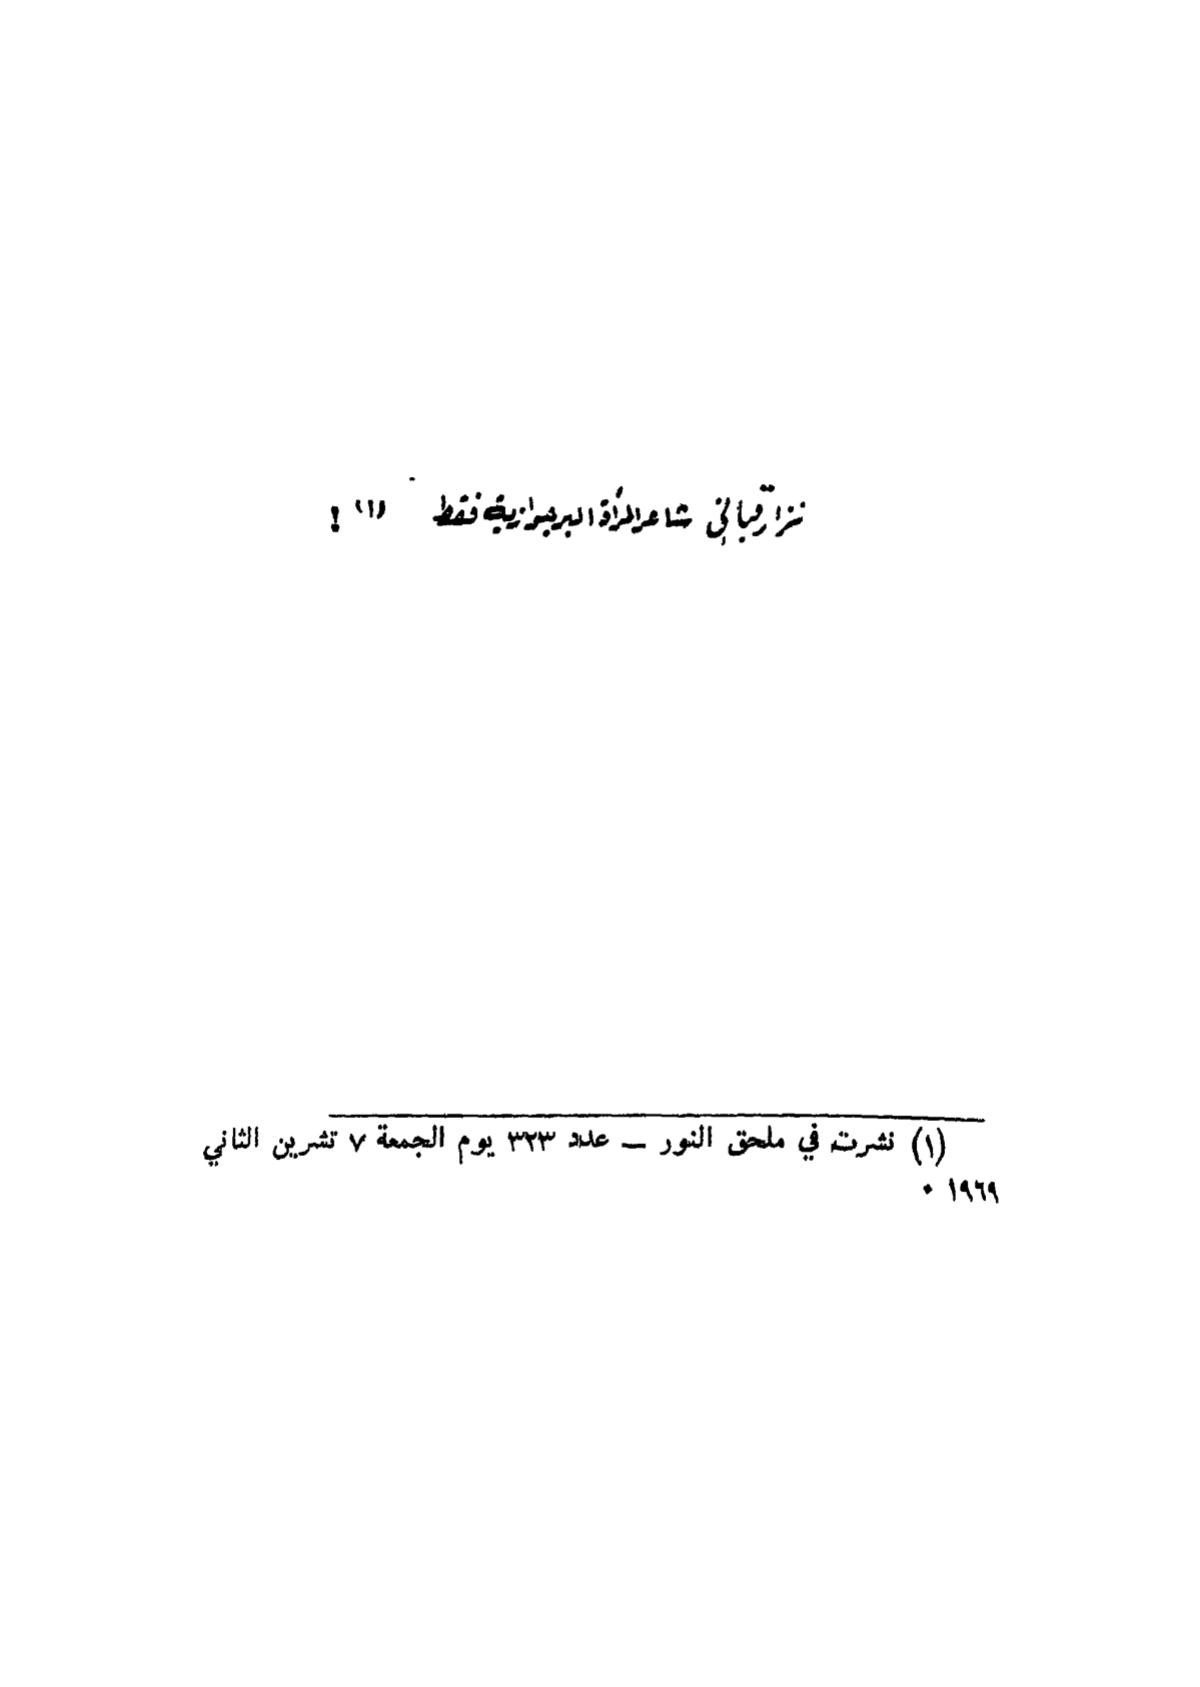 نزار قباني شاعر المرأة البرجوازية فقط (١) !
(١) نشرت في ملحق النور — عدد ٣٢٣ يوم الجمعة ٧ تشرين الثاني
١٩٦٩ ٠